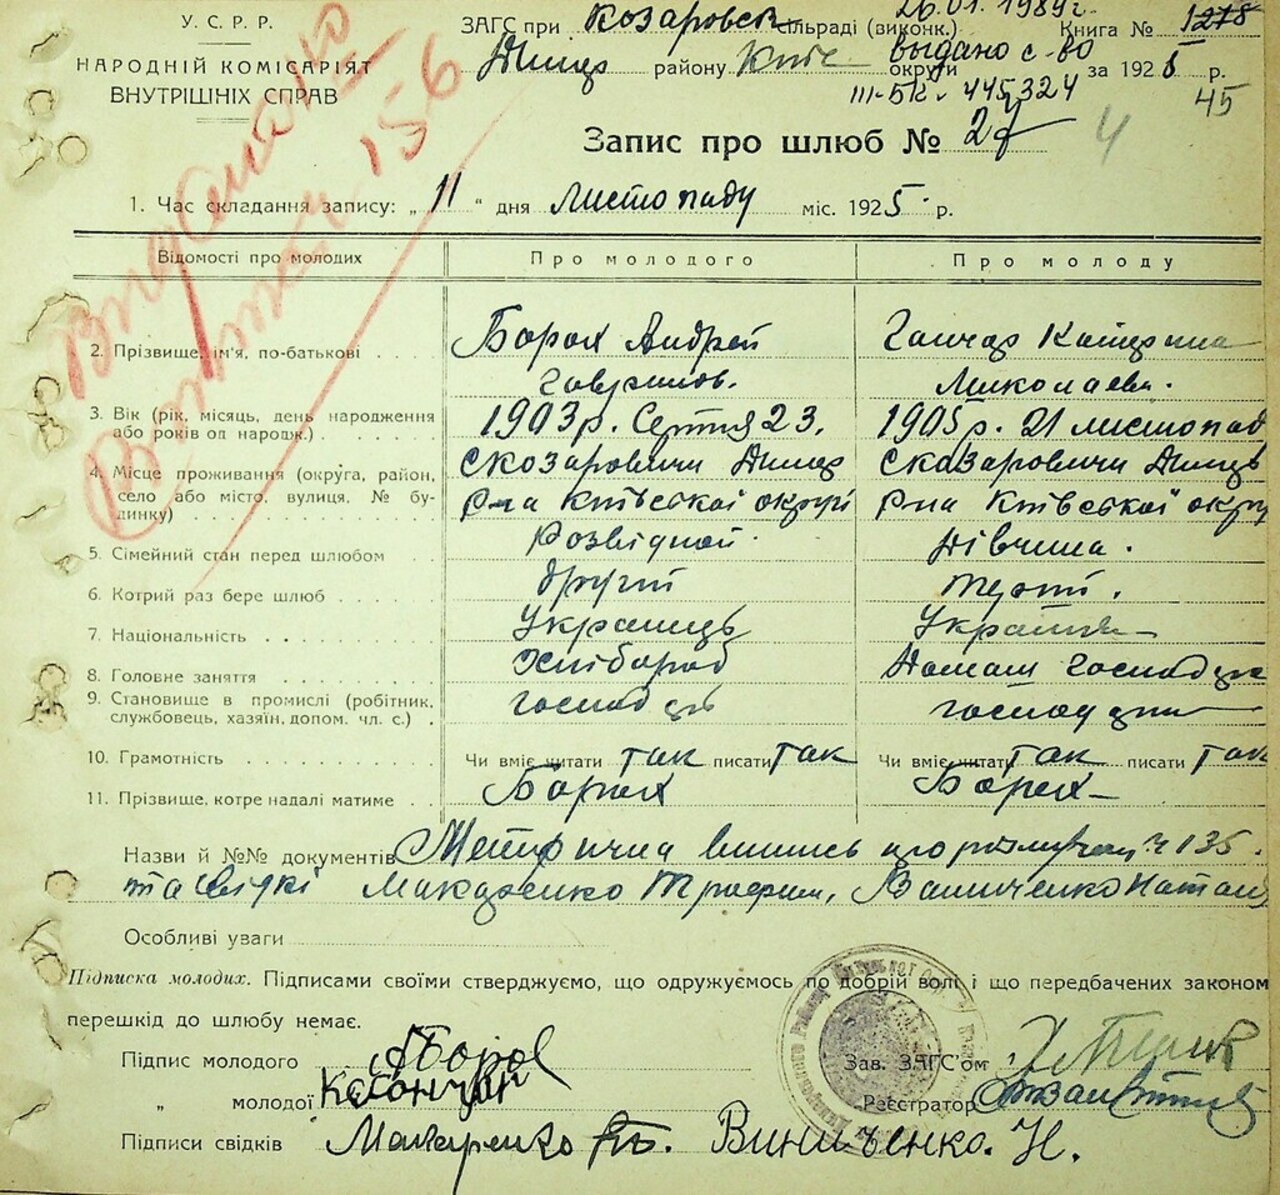 У. С. Р. Р.
НАРОДНІЙ КОМІСАРІЯТ
ВНУТРІШНІХ СПРАВ
26.01.1989г.
ЗАГС при Козаровск сільраді (виконк.) Книга №
району округи за 192 р.
выдано с-во
III-БК № 445324
45
Запис про шлюб № 27
4
1. Час складання запису: „ 11 “ дня Листопаду міс. 1925 р.
Відомості про молодих Про молодого Про молоду
2. Прізвище, ім'я, по-батькові Борох Андрей Ганчар Катерина
Гаврилов. Миколаевн.
3. Вік (рік, місяць, день народження 1903 р. Серпня 23. 1905 р. 21 листопад
або років од народж.)
4. Місце проживання (округа, район, с Козаровичи Димер с Козаровичи Димер
село або місто, вулиця, № бу- р-на Київської округи р-на Київської округ
динку)
5. Сімейний стан перед шлюбом Розвідной Дівчина.
6. Котрий раз бере шлюб другий
7. Національність Українець Українка
8. Головне заняття Хлібороб Домаш господ
9. Становище в промислі (робітник,
службовець, хазяїн, допом. чл. с.)
10. Грамотність Чи вміє читати так писати так Чи вміє читати так писати так
11. Прізвище, котре надалі матиме Борох Борох
Назви й №№ документів Метрична випись № 135.
та свідкі Макаренко Трофим, Винниченко Натал
Особливі уваги
Підписка молодих. Підписами своїми стверджуємо, що одружуємось по добрій волі і що передбачених законом
перешкід до шлюбу немає.
Підпис молодого АБорох
„ молодої КГончар
Зав. ЗАГС'ом
Реєстратор
Підписи свідків Макаренко Виниченко. Н.